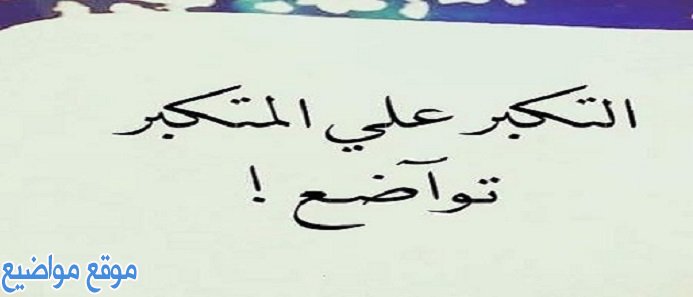 التكبر علي المتكبر
توآضع !
موقع مواضيع